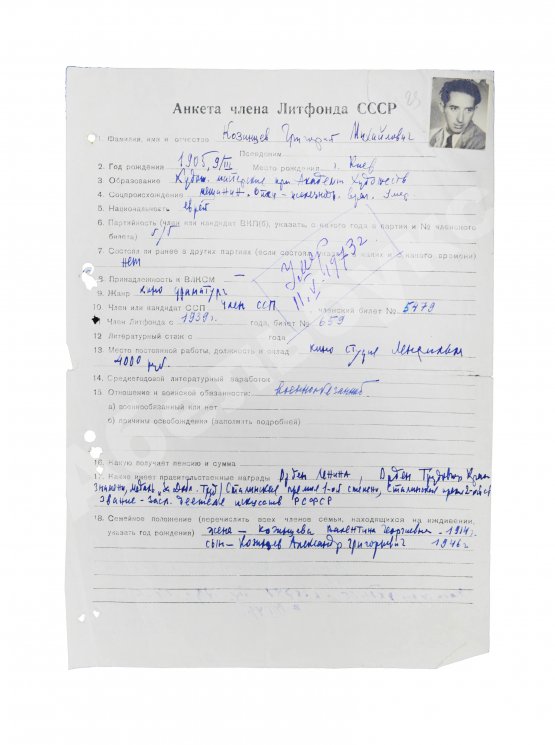 83
Анкета члена Литфонда СССР
1. Фамилия, имя и отчество Козинцев Григорий Михайлович
Псевдоним
2. Год рождения 1905, 9/III Место рождения г. Киев
3. Образование Худож. мастерские при Академии Художеств
4. Соцпроисхождение мещанин. Отец - служащий,
5. Национальность еврей
6. Партийность (член или кандидат ВКП(б), указать, с какого года в партии и № членского
билета) б/п
7. Состоял ли ранее в других партиях (если состоял, каких и какого времени)
нет
умер
11.V.1973г.
8. Принадлежность к ВЛКСМ —
9. Жанр кино драматург
10. Член или кандидат ССП член ССП членский билет № 5479
11. Член Литфонда с 1939г. года, билет № 659
12. Литературный стаж с года
13. Место постоянной работы, должность и оклад кино студия Ленфильм
4000 руб.
14. Среднегодовой литературный заработок
15. Отношение к воинской обязанности: военнообязанный
а) военнообязанный или нет
б) причины освобождения (заполнить подробней)
16. Какую получает пенсию и сумма
17. Какие имеет правительственные награды Орден Ленина, Орден Трудового Красн.
Знамени, медаль „За Добл. Труд" Сталинская премия 1-ой степени, Сталинская премия 2-ой ст
Звание - Засл. деятеля искусств РСФСР
18. Семейное положение (перечислить всех членов семьи, находящихся на иждивении,
указать год рождения) жена — Козинцева Валентина Георгиевна - 1914г.
сын — Козинцев Александр Григорьевич 1946г.